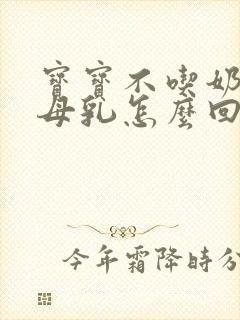 寶寶不喫奶
母乳怎麼回
今年霜降時分